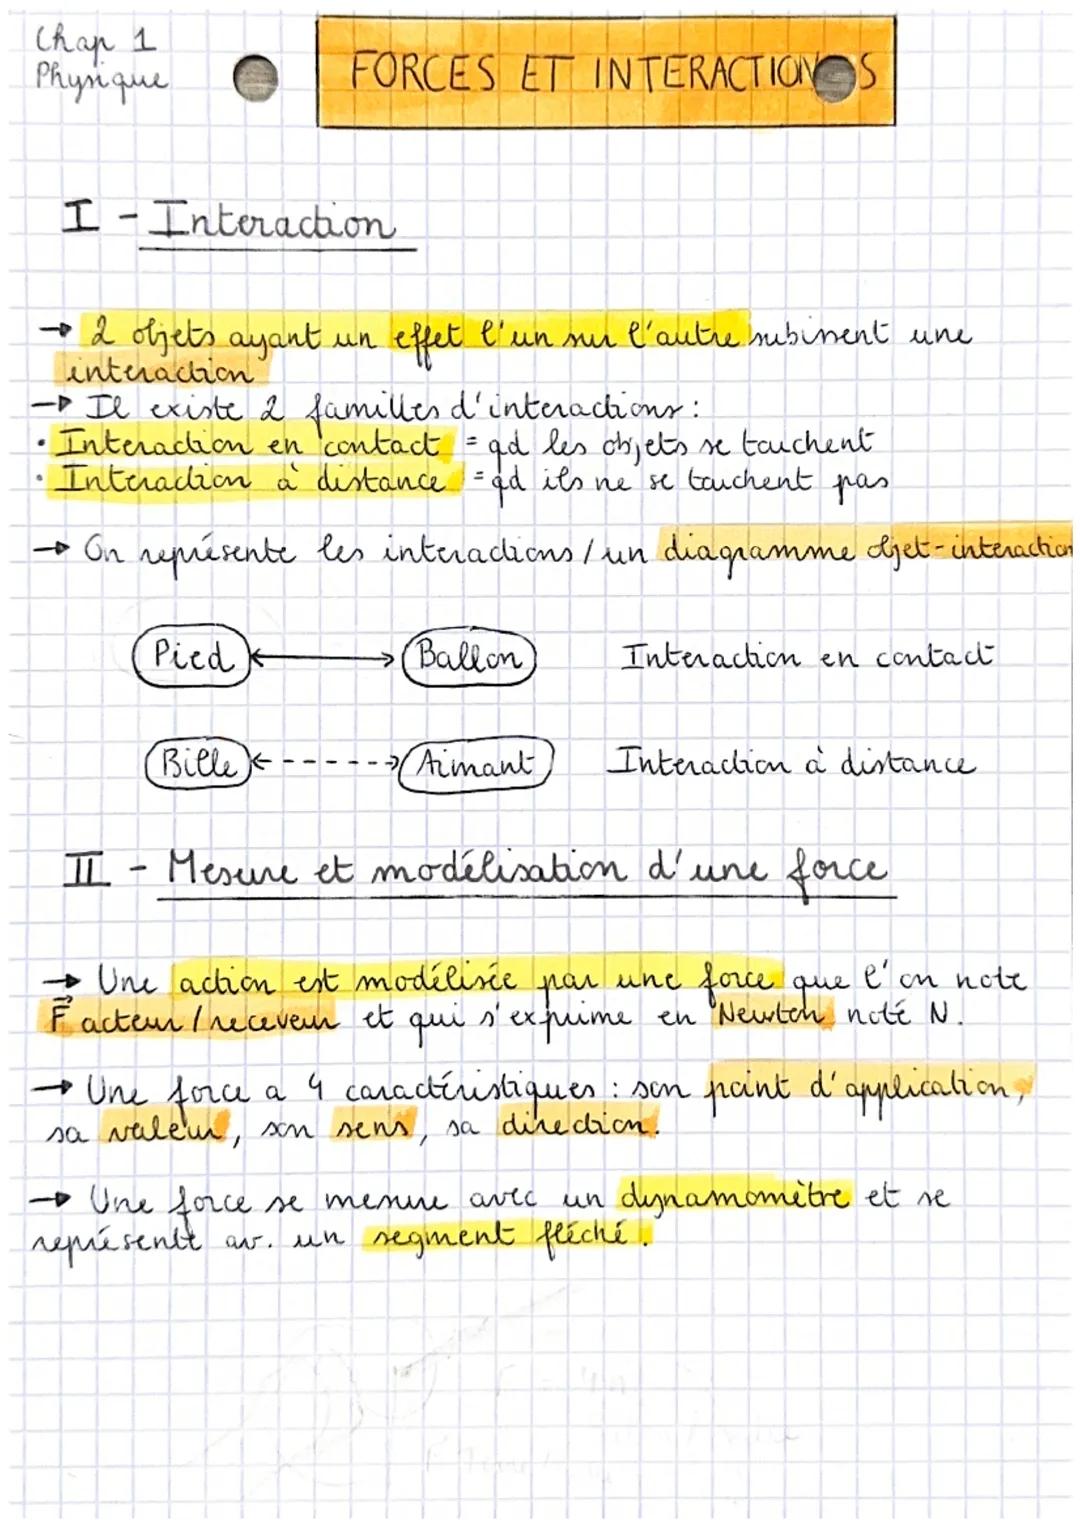 Chap 1
Physique
FORCES ET INTERACTIONS
I - Interaction
→ 2 objets ayant un effet l'un sur l'autre subissent une
interaction
→ Il existe 2 familles d'interactions :
• Interaction en contact = qd les objets se touchent
• Interaction à distance = qd ils ne se touchent pas
→ On représente les interactions / un diagramme objet-interaction
Pied Ballon Interaction en contact
Bille Aimant Interaction à distance
II - Mesure et modélisation d'une force
→ Une action est modélisée par une force que l'on note
F⃗ acteur / receveur et qui s'exprime en Newton noté N.
→ Une force a 4 caractéristiques : son point d'application,
sa valeur, son sens, sa direction.
→ Une force se mesure avec un dynamomètre et se
représente av. un segment fléché.